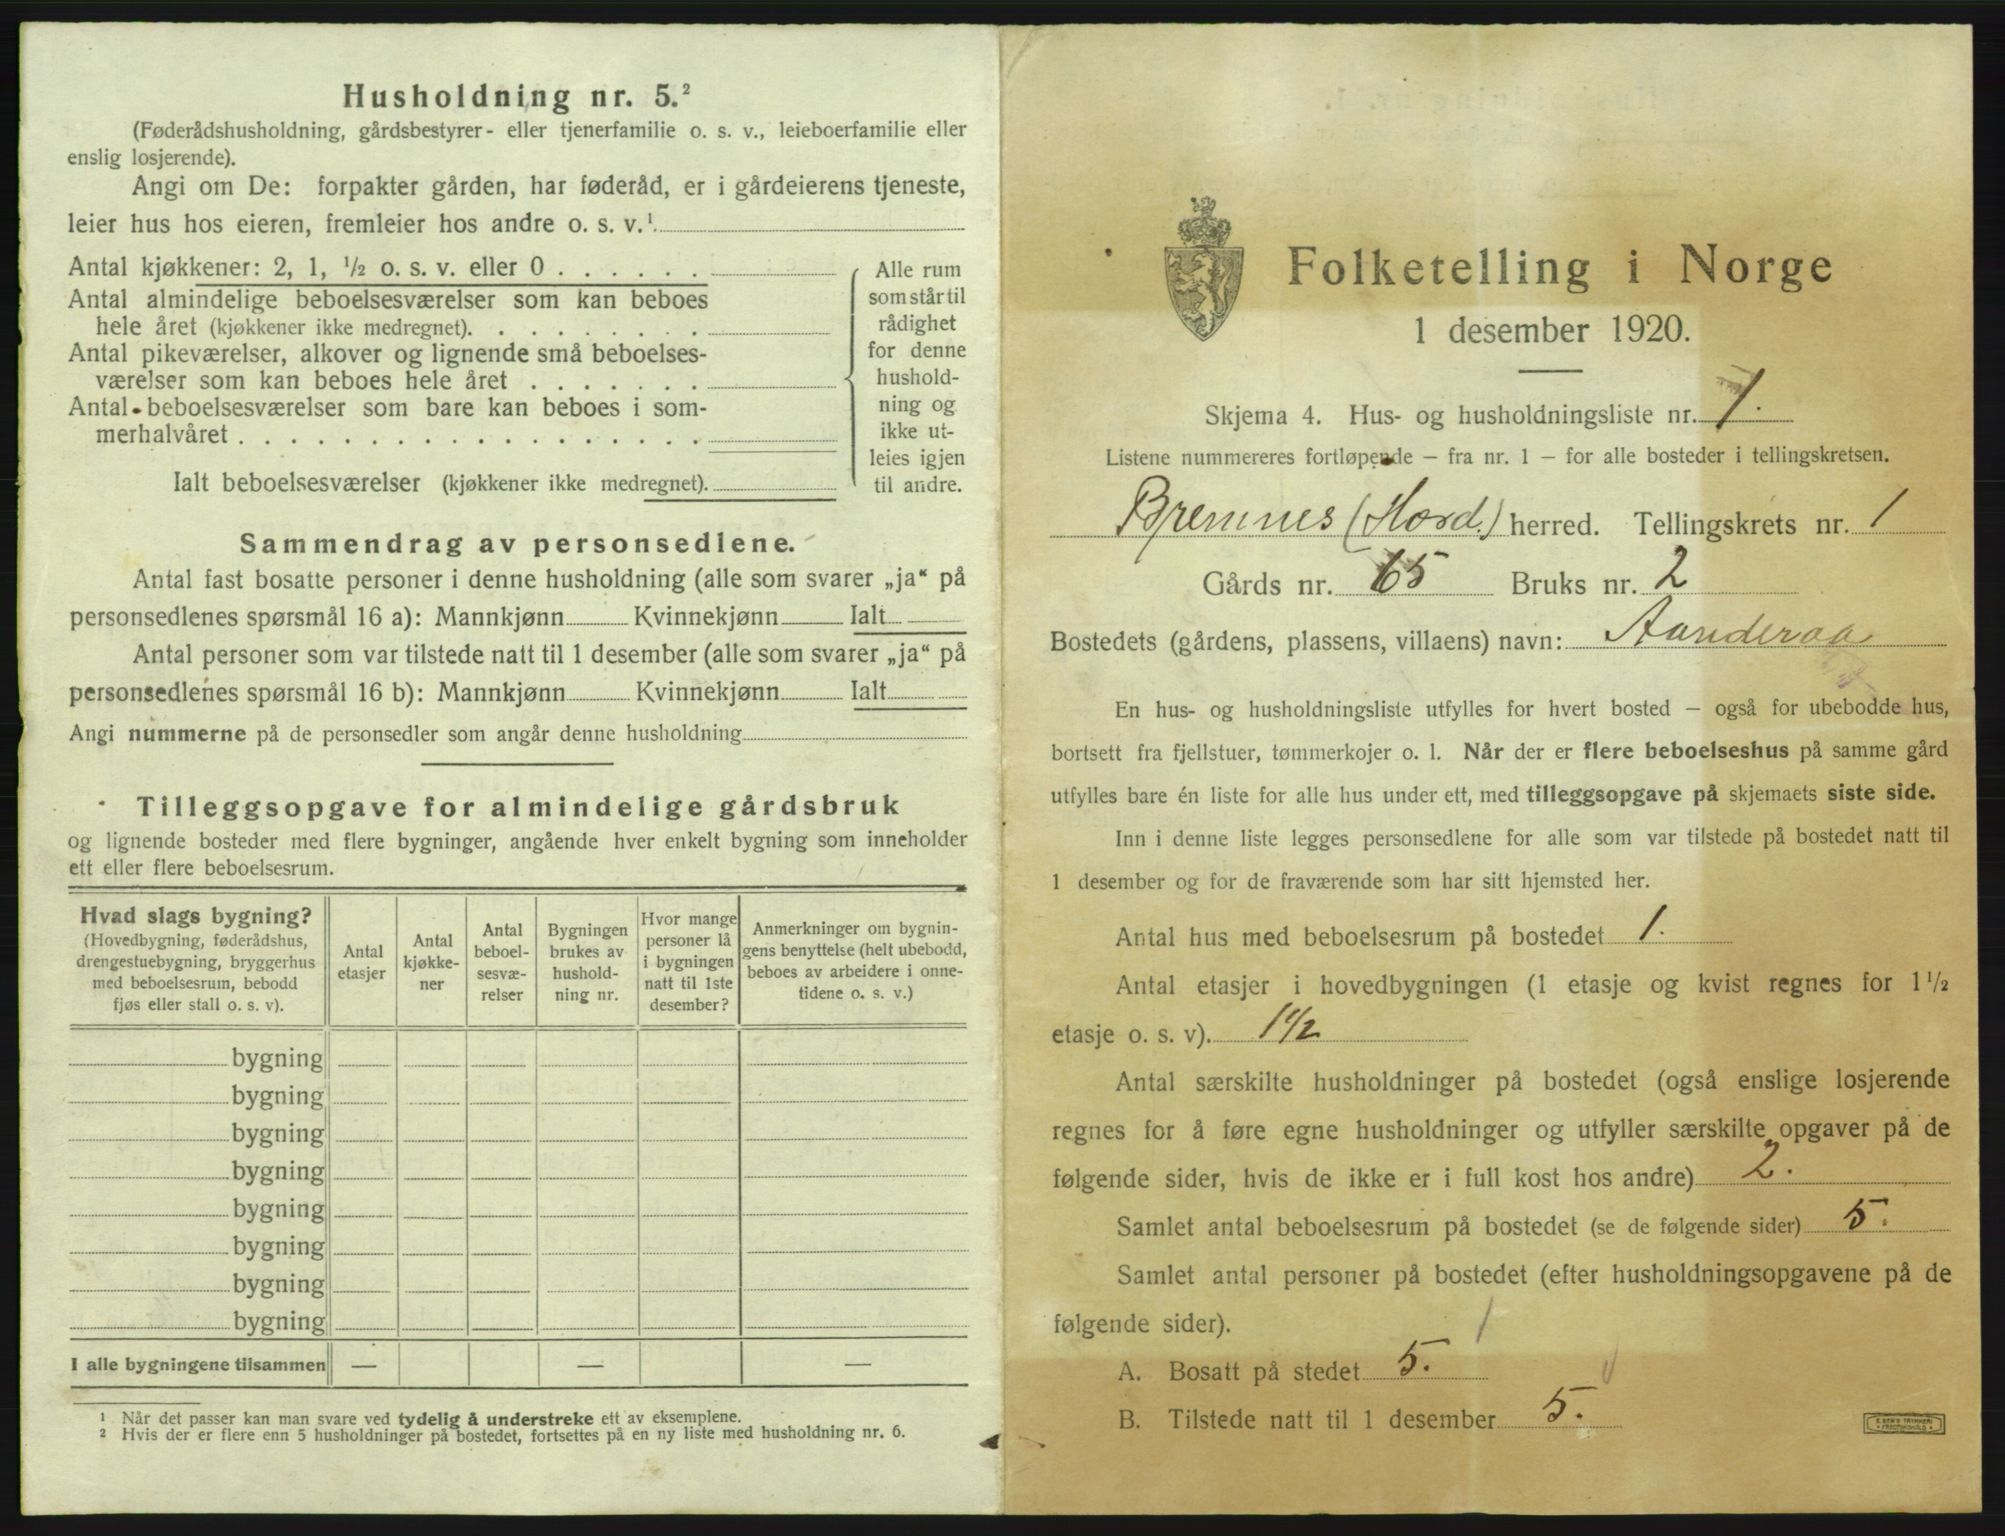 Husholdning nr. 5.²
(Føderådshusholdning, gårdsbestyrer- eller tjenerfamilie o. s. v., leieboerfamilie eller
enslig losjerende).
Angi om De: forpakter gården, har føderåd, er i gårdeierens tjeneste,
leier hus hos eieren, fremleier hos andre o. s. v.¹
Antal kjøkkener: 2, 1, ½ o. s. v. eller 0 . . . . . .
Antal almindelige beboelsesværelser som kan beboes
hele året (kjøkkener ikke medregnet). . . . . . . . .
Antal pikeværelser, alkover og lignende små beboelses-
værelser som kan beboes hele året . . . . . . .
Antal beboelsesværelser som bare kan beboes i som-
merhalvåret . . . . . . . . . . . . . . . . . .
Ialt beboelsesværelser (kjøkkener ikke medregnet).
Alle rum
som står til
rådighet
for denne
hushold-
ning og
ikke ut-
leies igjen
til andre.
Sammendrag av personsedlene.
Antal fast bosatte personer i denne husholdning (alle som svarer „ja“ på
personsedlenes spørsmål 16 a): Mannkjønn Kvinnekjønn Ialt
Antal personer som var tilstede natt til 1 desember (alle som svarer „ja“ på
personsedlenes spørsmål 16 b): Mannkjønn Kvinnekjønn Ialt
Angi nummerne på de personsedler som angår denne husholdning
Tilleggsopgave for almindelige gårdsbruk
og lignende bosteder med flere bygninger, angående hver enkelt bygning som inneholder
ett eller flere beboelsesrum.
Hvad slags bygning?
(Hovedbygning, føderådshus,
drengestuebygning, bryggerhus
med beboelsesrum, bebodd
fjøs eller stall o. s. v).
Antal
etasjer
Antal
kjøkke-
ner
Antal
beboel-
sesvæ-
relser
Bygningen
brukes av
hushold-
ning nr.
Hvor mange
personer lå
i bygningen
natt til 1ste
desember?
Anmerkninger om bygnin-
gens benyttelse (helt ubebodd,
beboes av arbeidere i onne-
tidene o. s. v.)
bygning
bygning
bygning
bygning
bygning
bygning
bygning
bygning
I alle bygningene tilsammen — — —
¹ Når det passer kan man svare ved tydelig å understreke ett av eksemplene.
² Hvis der er flere enn 5 husholdninger på bostedet, fortsettes på en ny liste med husholdning nr. 6.
Folketelling i Norge
1 desember 1920.
Skjema 4. Hus- og husholdningsliste nr. 1.
Listene nummereres fortløpende – fra nr. 1 – for alle bosteder i tellingskretsen.
Bremnes (Hord.) herred. Tellingskrets nr. 1
Gårds nr. 65 Bruks nr. 2
Bostedets (gårdens, plassens, villaens) navn: Aanderaa
En hus- og husholdningsliste utfylles for hvert bosted – også for ubebodde hus,
bortsett fra fjellstuer, tømmerkojer o. l. Når der er flere beboelseshus på samme gård
utfylles bare én liste for alle hus under ett, med tilleggsopgave på skjemaets siste side.
Inn i denne liste legges personsedlene for alle som var tilstede på bostedet natt til
1 desember og for de fraværende som har sitt hjemsted her.
Antal hus med beboelsesrum på bostedet 1.
Antal etasjer i hovedbygningen (1 etasje og kvist regnes for 1½
etasje o. s. v). 1½
Antal særskilte husholdninger på bostedet (også enslige losjerende
regnes for å føre egne husholdninger og utfyller særskilte opgaver på de
følgende sider, hvis de ikke er i full kost hos andre) 2.
Samlet antal beboelsesrum på bostedet (se de følgende sider) 5.
Samlet antal personer på bostedet (efter husholdningsopgavene på de
følgende sider).
A. Bosatt på stedet 5.
B. Tilstede natt til 1 desember 5.